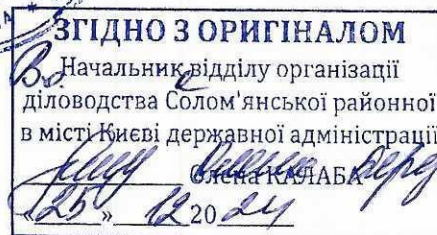 ЗГІДНО З ОРИГІНАЛОМ
В.о. Начальник відділу організації
діловодства Солом'янської районної
в місті Києві державної адміністрації
Олена КАЛАБА
«25» 12 2024